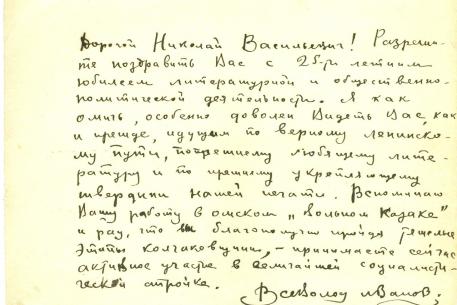 Дорогой Николай Васильевич! Разреши-
те поздравить Вас с 25-ти летним
юбилеем литературной и общественно-
политической деятельности. Я как
омич, особенно доволен видеть Вас, как
и прежде, идущим по верному ленинско-
му пути, по прежнему любящему лите-
ратуру и по прежнему укрепляющему
твердыни нашей печати. Вспоминаю
Вашу работу в омском „Вольном Казаке"
и рад, что Вы благополучно пройдя тяжелые
этапы колчаковщины, - принимаете сейчас
активное участие в величайшей социалисти-
ческой стройке.
Всеволод Иванов.